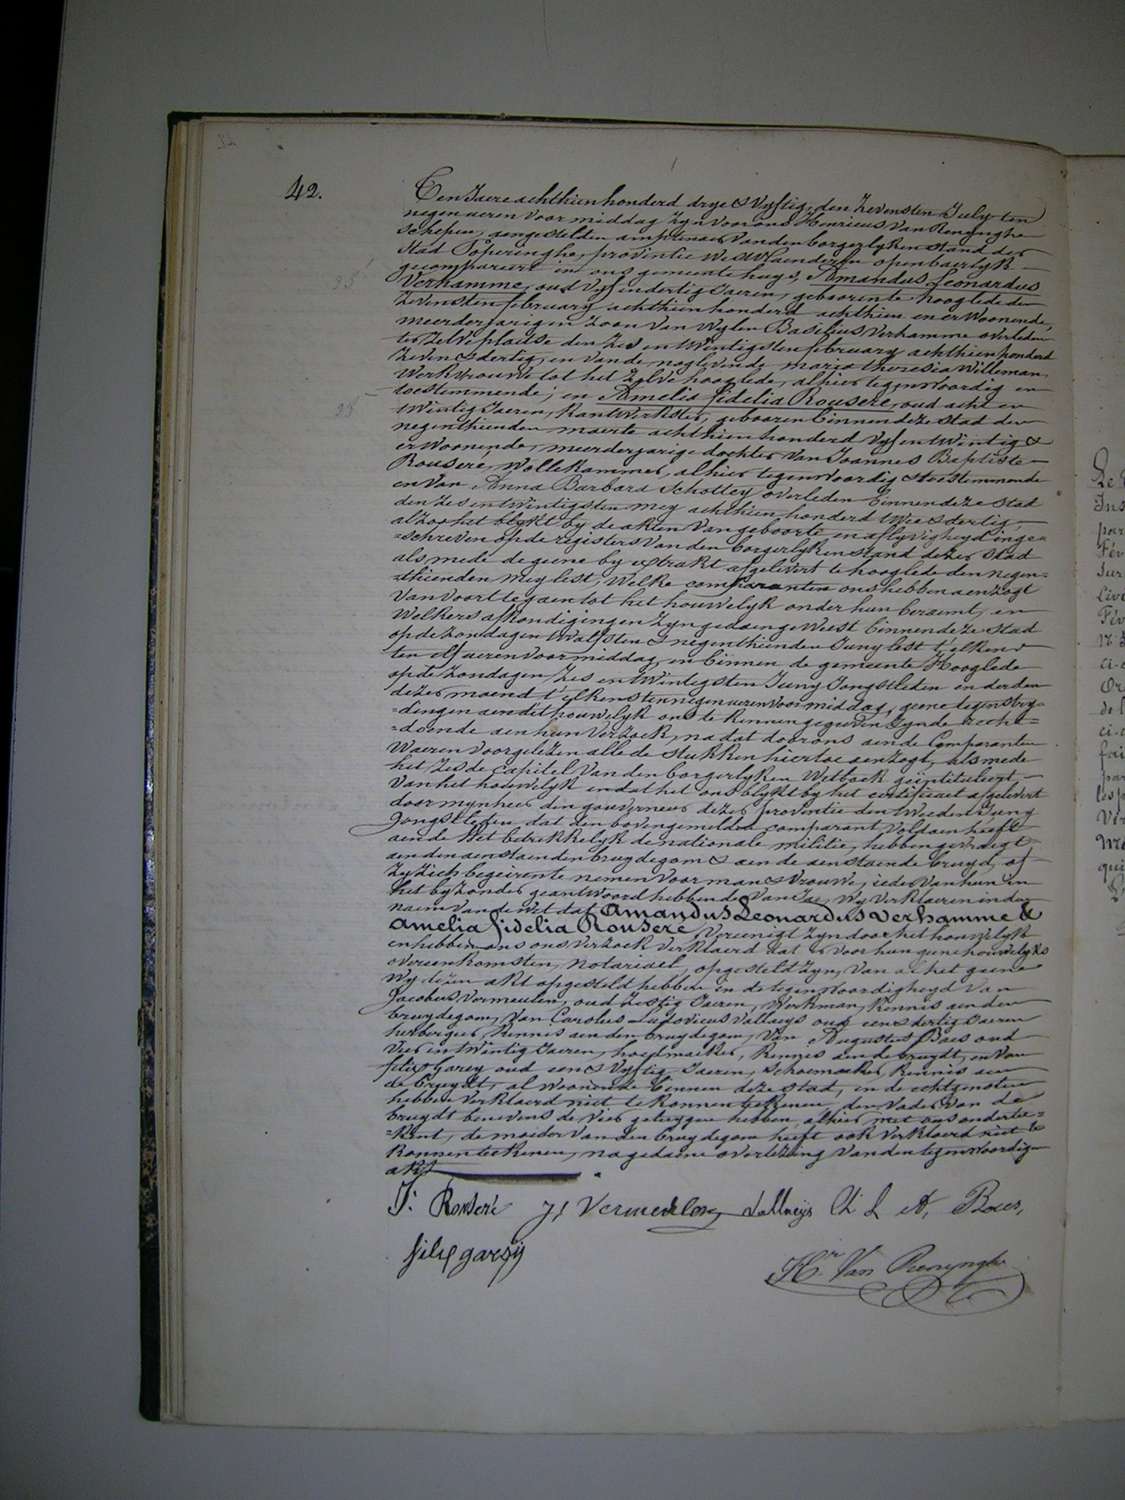 42.
Ten Jaere achthien honderd drye & Vyftig, den Zevensten July ten
negen ueren voor middag Zyn voor ons Henricus Van Renynghe
Schepen, aengestelden amptenaer Van den borgerlyken stand der
Stad Poperinghe, provintie Westvlaenderen openbaerlyk
gecompareert in ons gemeente huys, Amandus Leonardus
Verhamme, oud Vyf en dertig Jaeren, gebooren te hooglede den
Zevensten february achthien honderd achthien en er Woonende,
meerderjarigen Zoon Van Wylen Basilius Verhamme overleden
ter Zelve plaetse den Zes en twintigsten february achthien honderd
Zeven & dertig, en van de nog levende maria theresia Willeman
Werkvrouwe tot het Zelve hooglede, alhier tegenwoordig en
toestemmende, en Amelia fidelia Rousere, oud acht en
twintig Jaeren, Kantwerkster, gebooren binnen deze Stad den
negenthienden maerte achthien honderd Vyf en twintig &
er Woonende, meerderjarige dochter Van Joannes Baptiste
Rousere, Wollekammer, alhier tegenwoordig & toestemmende
en Van Anna Barbara Schottey overleden binnen deze Stad
den Zes en twintigsten mey achthien honderd twee & dertig,
alzoo het blykt by de akten Van geboorte en aflyvigheyd inge=
=schreven op de registers Van den borgerlyken stand dezer Stad
als mede de geene by extrakt afgelevert te hooglede den negen=
=thienden mey lest; Welke comparanten ons hebben aenzogt
Van voort te gaen tot het houwelyk onder hun beraemt, en
Welkers afkondigingen Zyn gedaen geweest binnen deze Stad
op de Zondagen twalfsten & negenthienden Juny lest t'elkens
ten elf ueren voor middag, en binnen de gemeente Hooglede
op de Zondagen Zes en twintigsten Juny Jongstleden en derden
dezer maend t'elkens ten negen ueren voor middag, geene tegenstry=
=dingen aen dit houwelyk ons te kennen gegeven Zynde recht=
=doende aen hun Verzoek, na dat door ons aen de Comparanten
Waeren voorgelezen alle de stukken hier toe aenzogt, als mede
het Zesde Capitel Van den borgerlyken Wetboek geïntituleert
Van het houwelyk en dat het ons blykt by het certificaet afgelevert
door mynheer den gouverneur dezer provintie den tweeden Juny
Jongstleden, dat den bovengemelden comparant Voldaen heeft
aen de Wet betrekkelyk de nationale militie, hebben gevraegt
aen den aenstaenden bruydegom & aen de aenstaende bruyd, of
Zy Zich begeirente nemen voor man & Vrouwe, ieder van hun in
het byzonder geantwoord hebbende Van Ja, Wy Verklaeren in den
naem Van de Wet dat Amandus Leonardus Verhamme &
Amelia fidelia Rousere, Vereenigt Zyn door het houwelyk
en hebben ons ons Verzoek Verklaerd dat er voor hun geene houwelyks
overeenkomsten, notariael, opgesteld Zyn, Van al het geene
Wy dezen akt opgesteld hebben in de tegenwoordigheyd Van
Jacobus Vermeulen, oud Zestig Jaeren, Werkman, Kennis aen den
bruydegom, Van Carolus Ludovicus Vallaeys oud een & dertig Jaeren
herbergier, Kennis aen den bruydegom, Van Augustus Baes oud
Vier en twintig Jaeren, hoedmaeker, Kennis aen de bruydt, en Van
felix Garey oud een & Vyftig Jaeren, Schoemaeker, Kennis aen
de bruydt, al Woonende binnen deze stad, en de echtgenoten
hebben Verklaerd niet te konnen teekenen, den Vader Van de
bruydt benevens de Vier getuygen hebben, alhier met ons ondertee=
=kent, de moeder Van den bruydegom heeft ook Verklaerd niet te
konnen teekenen, na gedaene overlezing Van den tegenwoordigen
akt
J: Rouseré J/ Vermeulen Vallaeys Ch L A, Baes,
felix garsÿ
Hri Van Renynghe